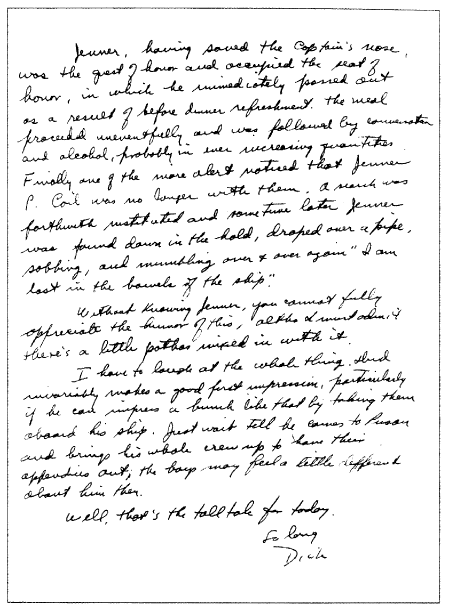 Jenner, having saved the Captain's nose,
was the guest of honor and occupied the seat of
honor, in which he immediately passed out
as a result of before dinner refreshment. The meal
proceeded uneventfully and was followed by conversation
and alcohol, probably in ever increasing quantities.
Finally one of the more alert noticed that Jenner
P. Coil was no longer with them. A search was
forthwith instituted and some time later Jenner
was found down in the hold, draped over a pipe,
sobbing, and mumbling over & over again "I am
lost in the bowels of the ship".
Without knowing Jenner, you cannot fully
appreciate the humor of this, altho I must admit
there's a little pathos mixed in with it.
I have to laugh at the whole thing.
invariably makes a good first impression, particularly
if he can impress a bunch like that by taking them
aboard his ship. Just wait till he comes to Pusan
and brings his whole crew up to have their
appendices out; the boys may feel a little different
about him then.
Well, that's the tall tale for today.
So long
Dick